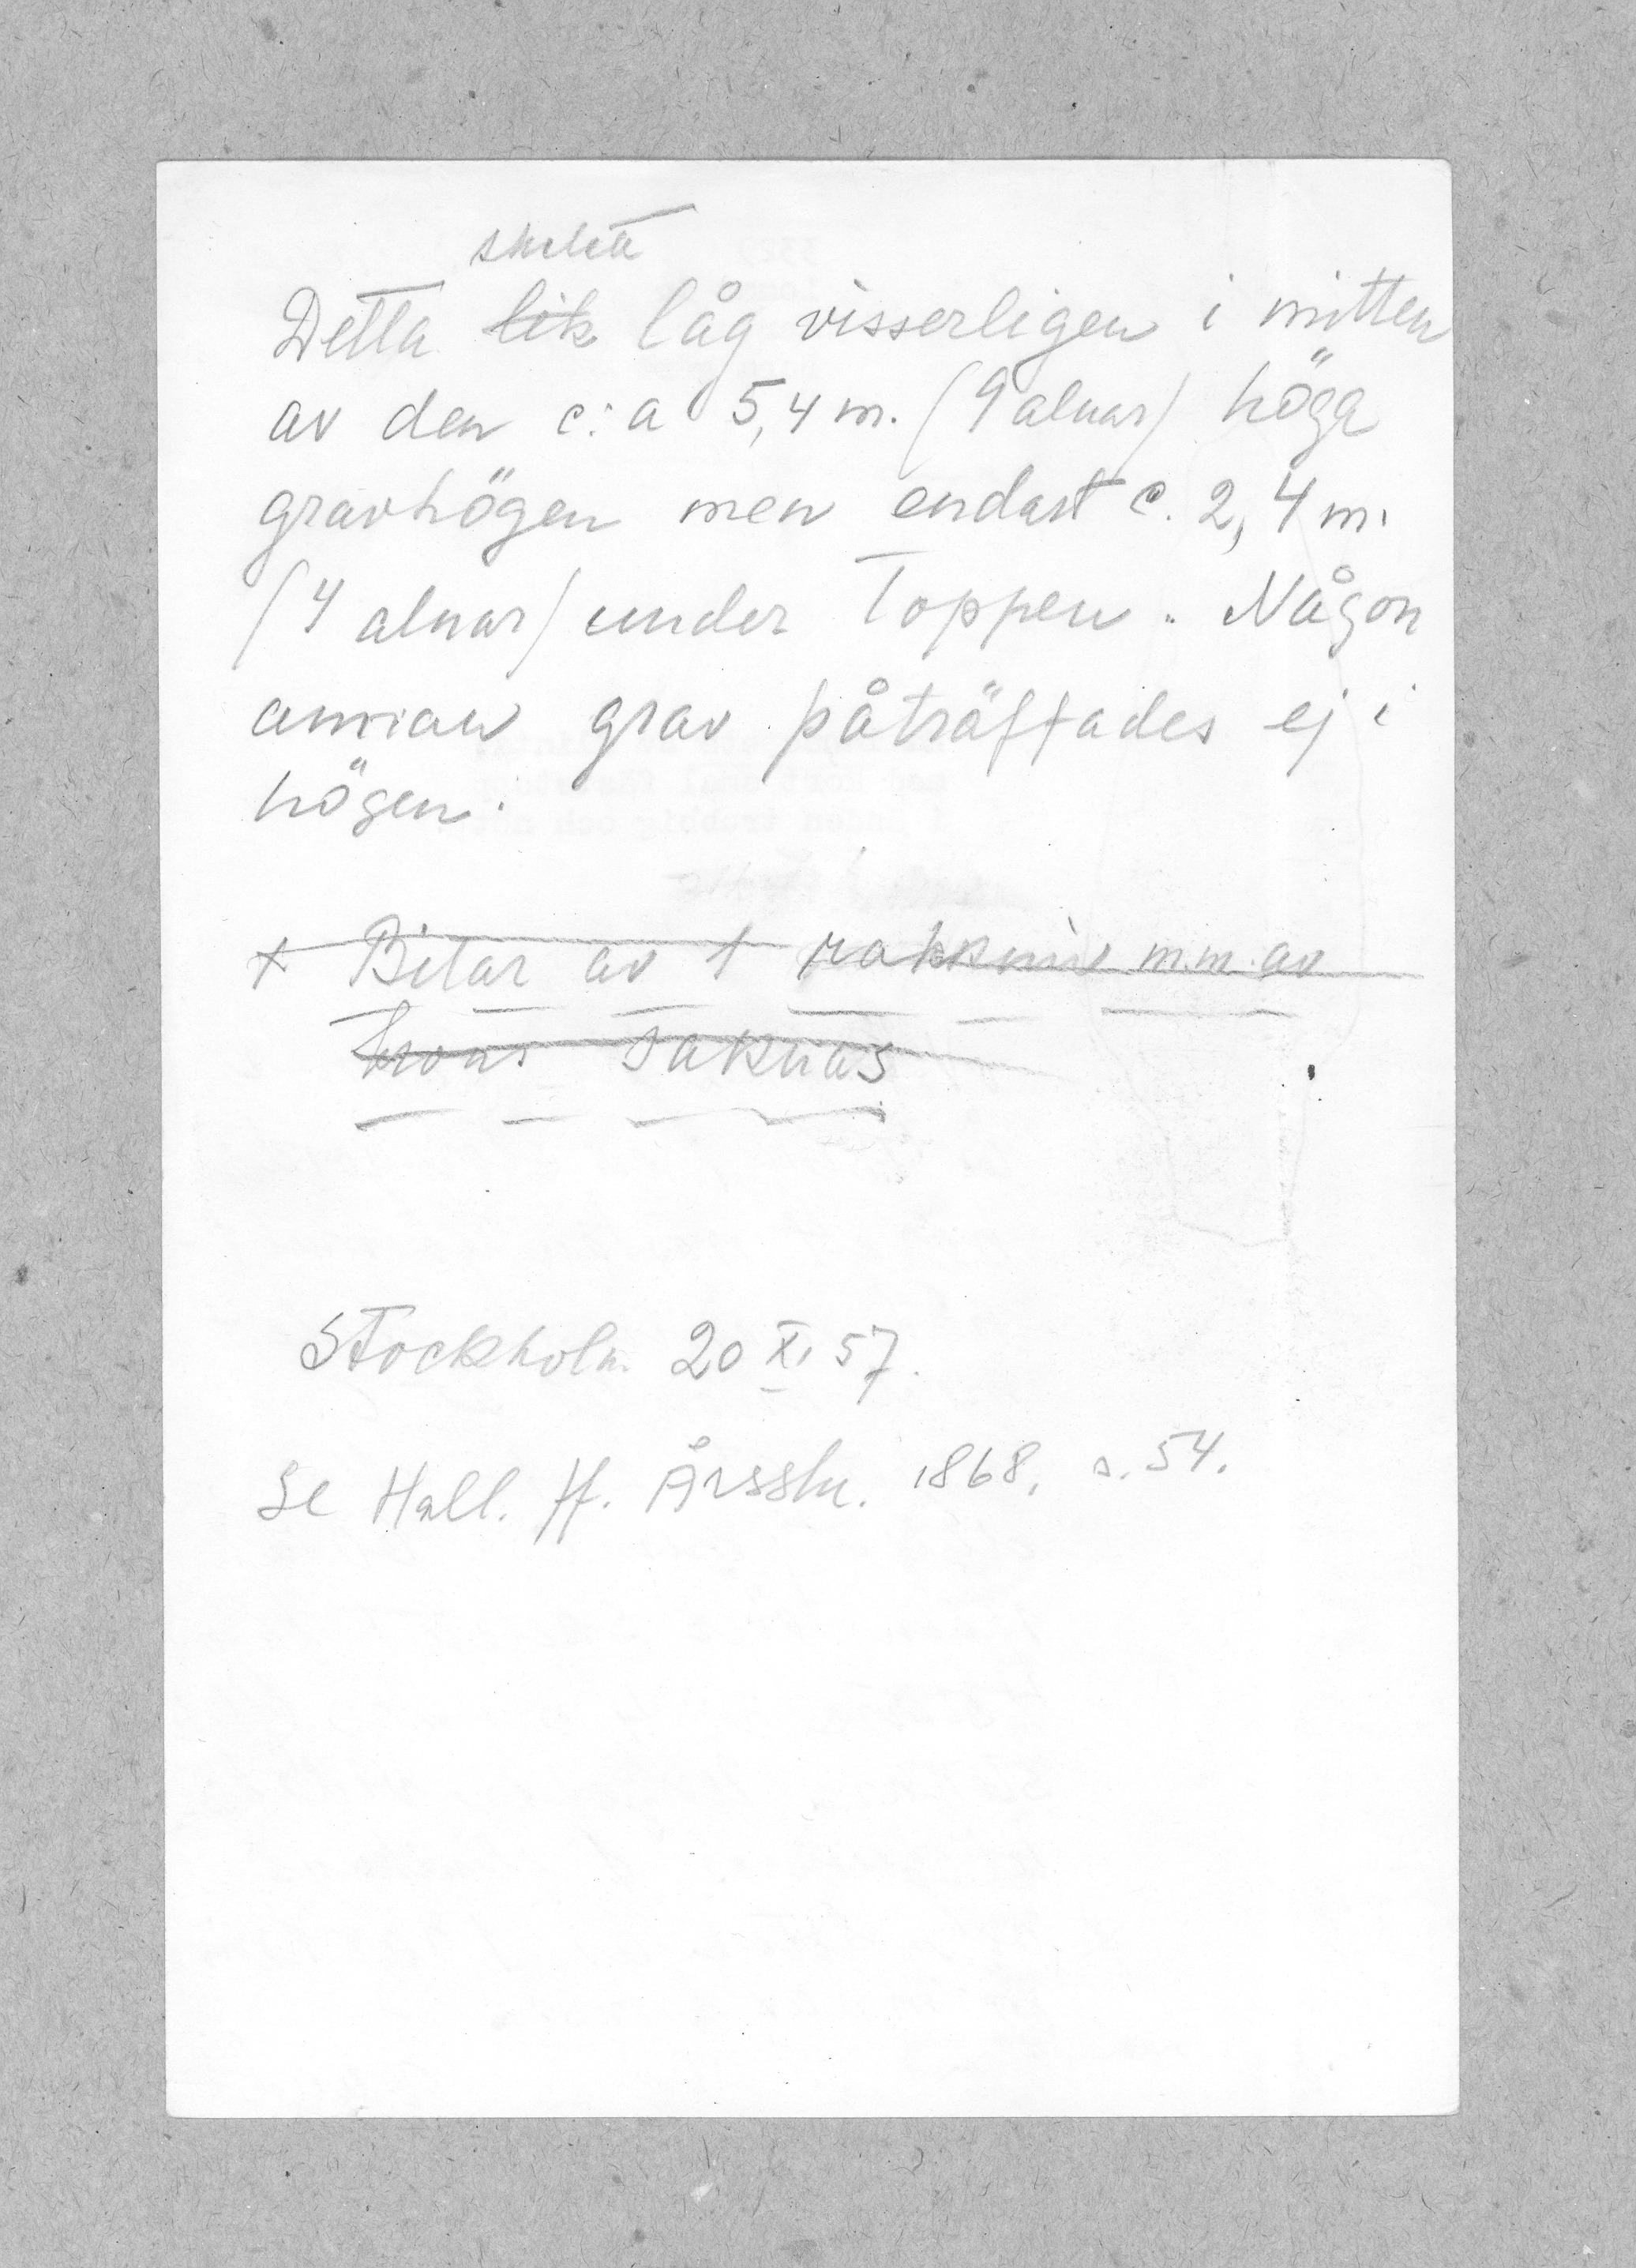 skelett
Detta lik låg visserligen i mitten
av den c:a 5,4 m. (9 alnar) höga
gravhögen men endast c. 2,4 m.
(4 alnar) under Toppen. Någon
annan grav påträffades ej i
högen.
+ Bitar av 1 rakkniv m.m. av
brons saknas
Stockholm 20 XI 57.
Se Hall. H. Årsskr. 1868. s. 54.